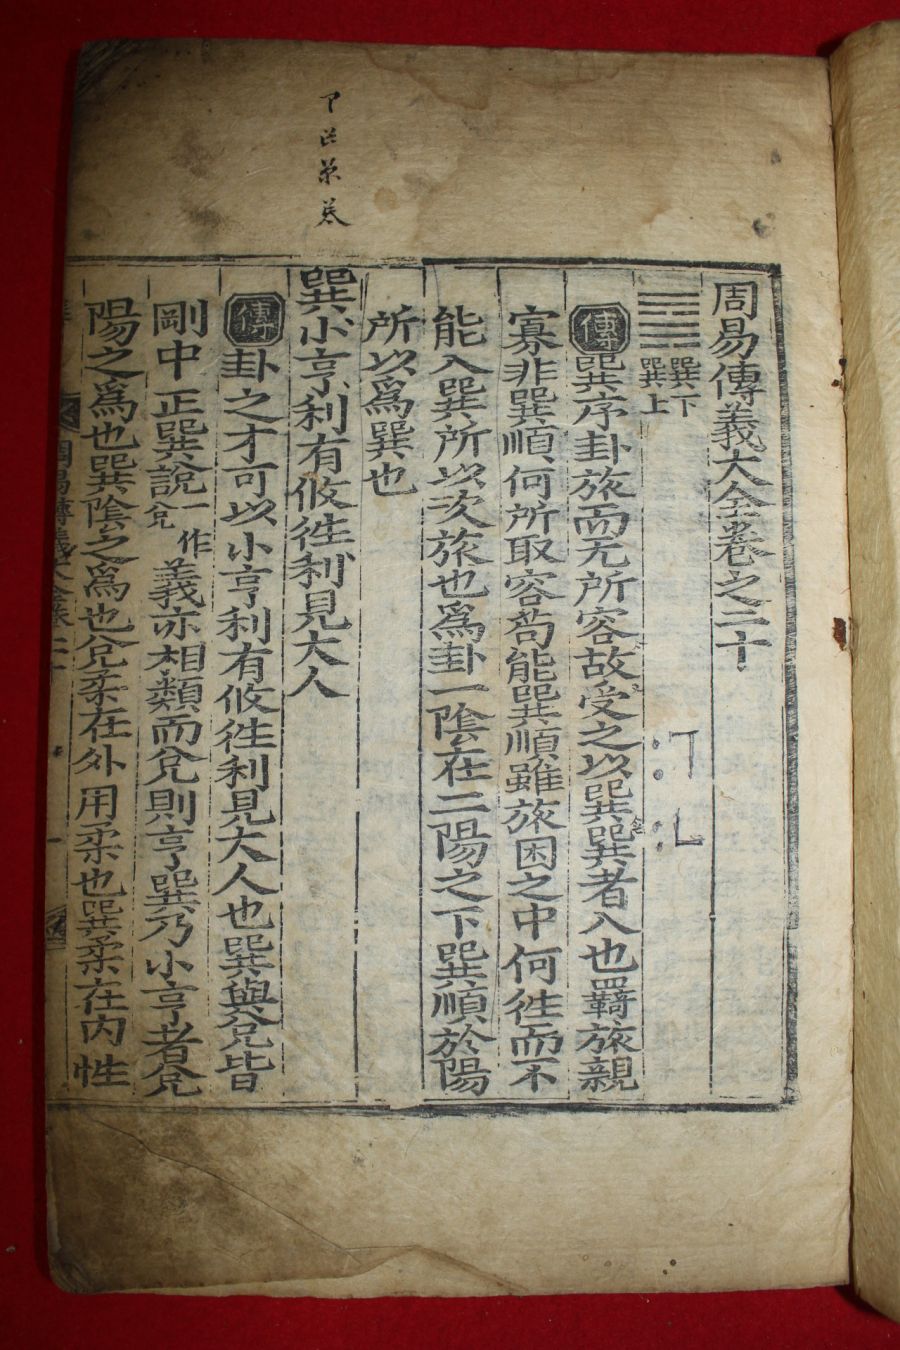 周易傳義大全卷之二十
巽下
巽上
傳巽序卦旅而无所容故受之以巽巽者入也羇旅親
寡非巽順何所取容苟能巽順雖旅困之中何徃而不
能入巽所以次旅也爲卦一陰在二陽之下巽順於陽
所以爲巽也
巽小亨利有攸徃利見大人
傳卦之才可以小亨利有攸徃利見大人也巽與兌皆
剛中正巽說一作兌義亦相類而兌則亨巽乃小亨者兌
陽之爲也巽陰之爲也兌柔在外用柔也巽柔在内性